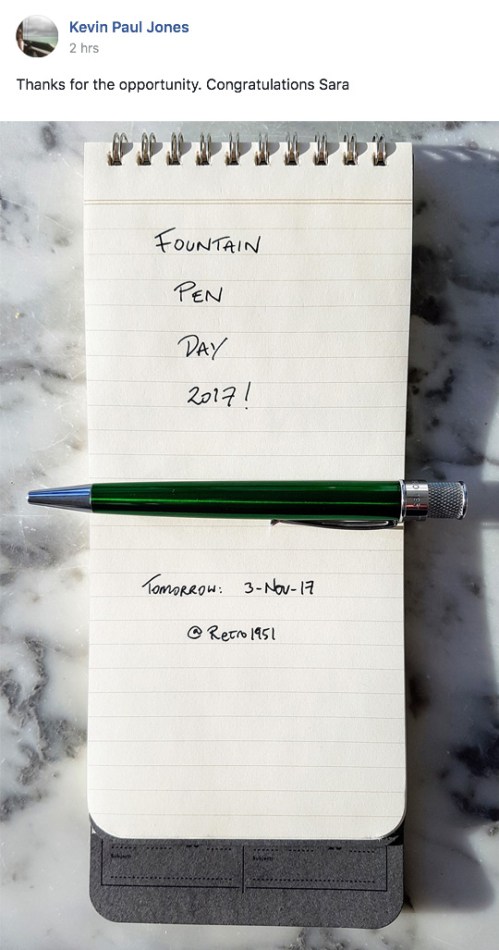 Kevin Paul Jones
2 hrs
Thanks for the opportunity. Congratulations Sara
FOUNTAIN
PEN
DAY
2017!
TOMORROW: 3-NOV-17
@Retro1951